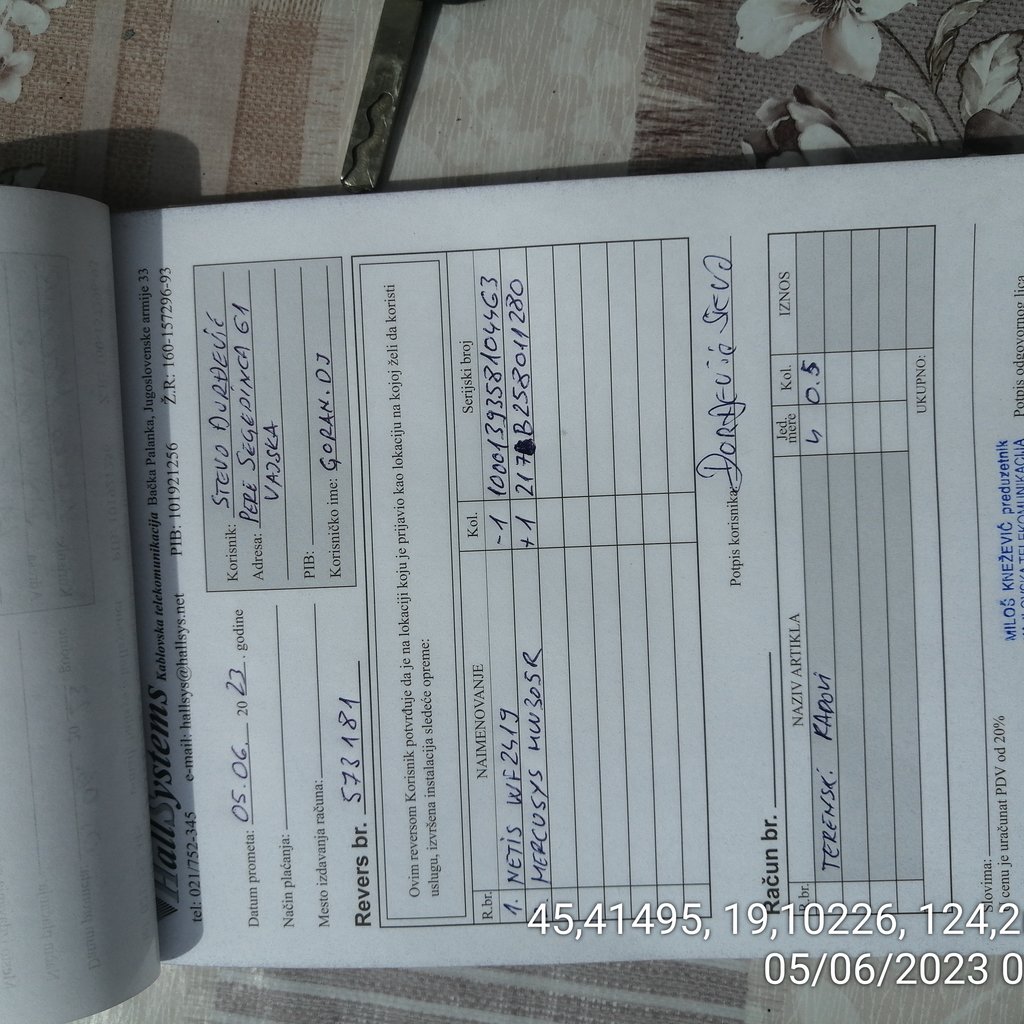 HallSystems Kablovska telekomunikacija Bačka Palanka, Jugoslovenske armije 33
tel: 021/752-345 e-mail: hallsys@hallsys.net PIB: 101921256 Ž.R: 160-157296-93
Datum prometa: 05.06. 2023. godine
Način plaćanja:
Mesto izdavanja računa:
Revers br. 573181
Korisnik: STEVO ĐURĐEVIĆ
Adresa: PERE SEGEDINCA 61
VAJSKA
PIB:
Korisničko ime: GORAN.DJ
Ovim reversom Korisnik potvrđuje da je na lokaciji koju je prijavio kao lokaciju na kojoj želi da koristi
uslugu, izvršena instalacija sledeće opreme:
R.br. NAIMENOVANJE Kol. Serijski broj
1. NETIS WF2419 -1 1000139358104463
MERCUSYS MW305R +1 217B258011280
Potpis korisnika: ĐORĐEVIĆ STEVO
Račun br.
R.br. NAZIV ARTIKLA Jed. mere Kol. IZNOS
TERENSKI RADOVI h 0.5
UKUPNO:
Slovima:
U cenu je uračunat PDV od 20%
MILOŠ KNEŽEVIĆ preduzetnik
Potpis odgovornog lica
45,41495, 19,10226, 124,2
05/06/2023 0